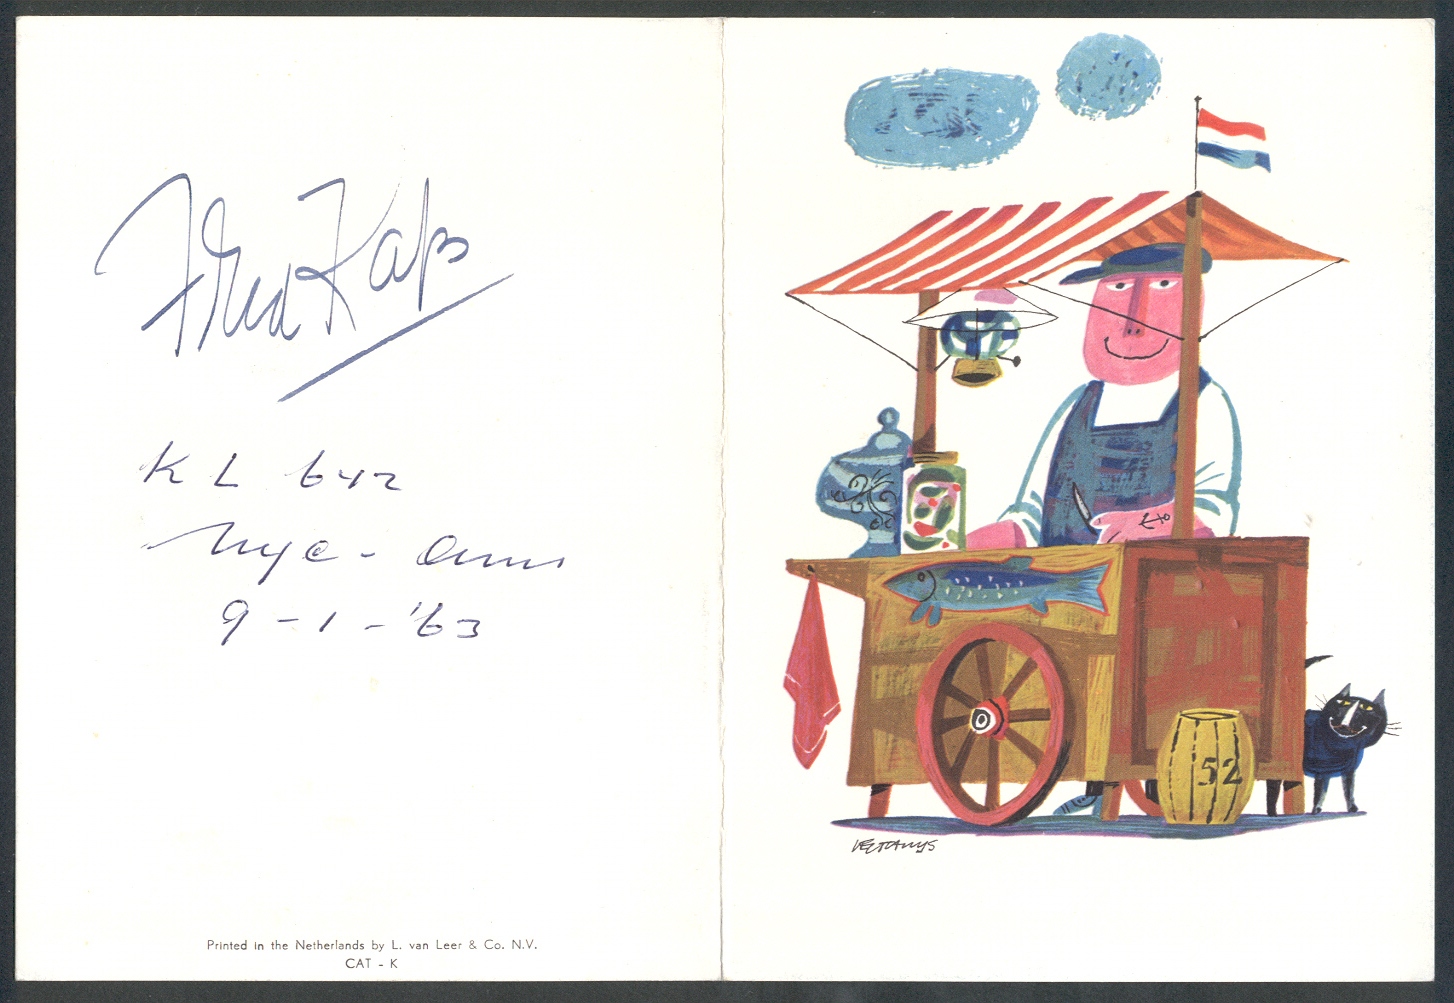 Fred Kaps
KL 642
Nyc - Ams
9-1-'63
Printed in the Netherlands by L. van Leer & Co. N.V.
CAT - K
52